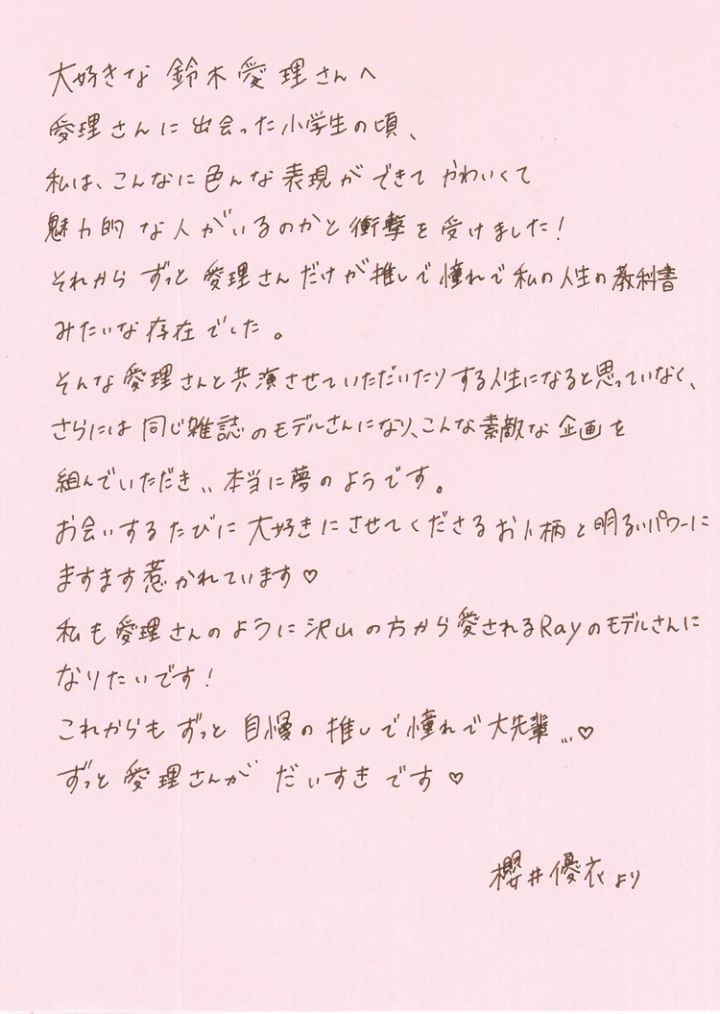 大好きな 鈴木愛理さんへ
愛理さんに出会った小学生の頃、
私は、こんなに色んな表現ができて かわいくて
魅力的な人がいるのかと衝撃を受けました!
それから ずっと 愛理さんだけが推しで憧れで私の人生の教科書
みたいな存在でした。
そんな愛理さんと共演させていただいたりする人生になると思っていなく、
さらには同じ雑誌のモデルさんになり、こんな素敵な企画を
組んでいただき... 本当に夢のようです。
お会いするたびに大好きにさせてくださるお人柄と明るいパワーに
ますます惹かれています♡
私も愛理さんのように沢山の方から愛されるRayのモデルさんに
なりたいです!
これからも ずっと 自慢の推しで憧れで大先輩...♡
ずっと愛理さんが だいすきです♡
櫻井優衣より